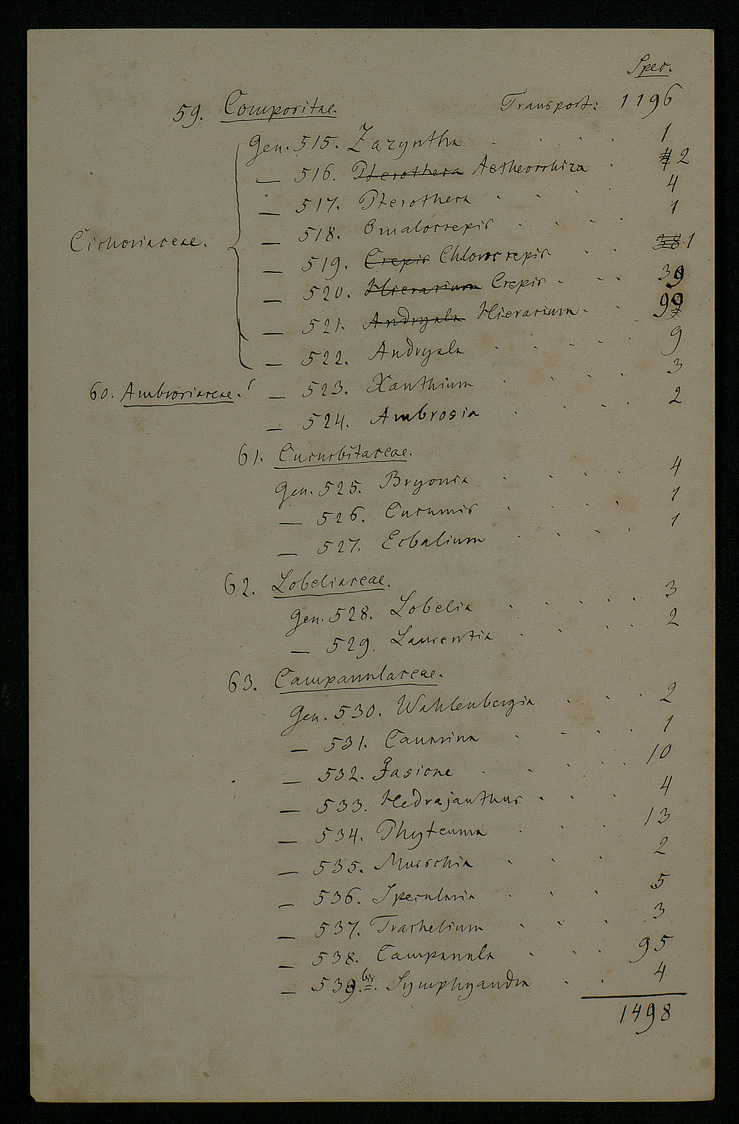 Spec.
59. Compositae. Transport: 1196
Gen. 515. Zazyntha 1
— 516. Pterothera Aetheorrhiza 2
— 517. Pterotheca 4
— 518. Omalocrepis 1
— 519. Crepis Chlorocrepis 38 1
Cichoriaceae.
— 520. Hieracium Crepis 39
— 521. Andryala Hieracium 99
— 522. Andryala 9
60. Ambrosiaceae. — 523. Xanthium 3
— 524. Ambrosia 2
61. Cucurbitaceae.
Gen. 525. Bryonia 4
— 526. Cucumis 1
— 527. Ecbalium 1
62. Lobeliaceae.
Gen. 528. Lobelia 3
— 529. Laurentia 2
63. Campanulaceae.
Gen. 530. Wahlenbergia 2
— 531. Canarina 1
— 532. Jasione 10
— 533. Hedrajanthus 4
— 534. Phyteuma 13
— 535. Musschia 2
— 536. Specularia 5
— 537. Trachelium 3
— 538. Campanula 95
— 538.bis. Symphyandra 4
1498